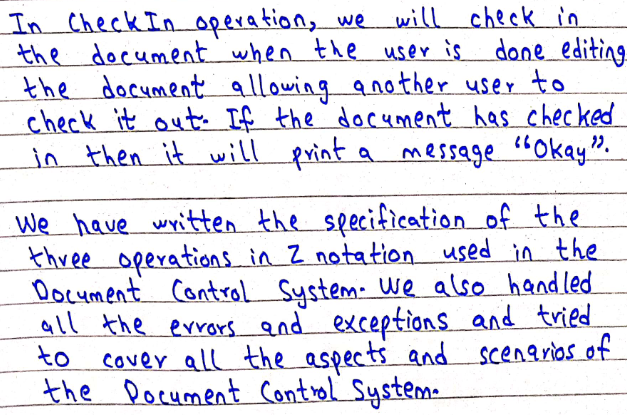 In CheckIn operation, we will check in
the document when the user is done editing
the document allowing another user to
check it out. If the document has checked
in then it will print a message "Okay".
We have written the specification of the
three operations in Z notation used in the
Document Control System. We also handled
all the errors and exceptions and tried
to cover all the aspects and scenarios of
the Document Control System.